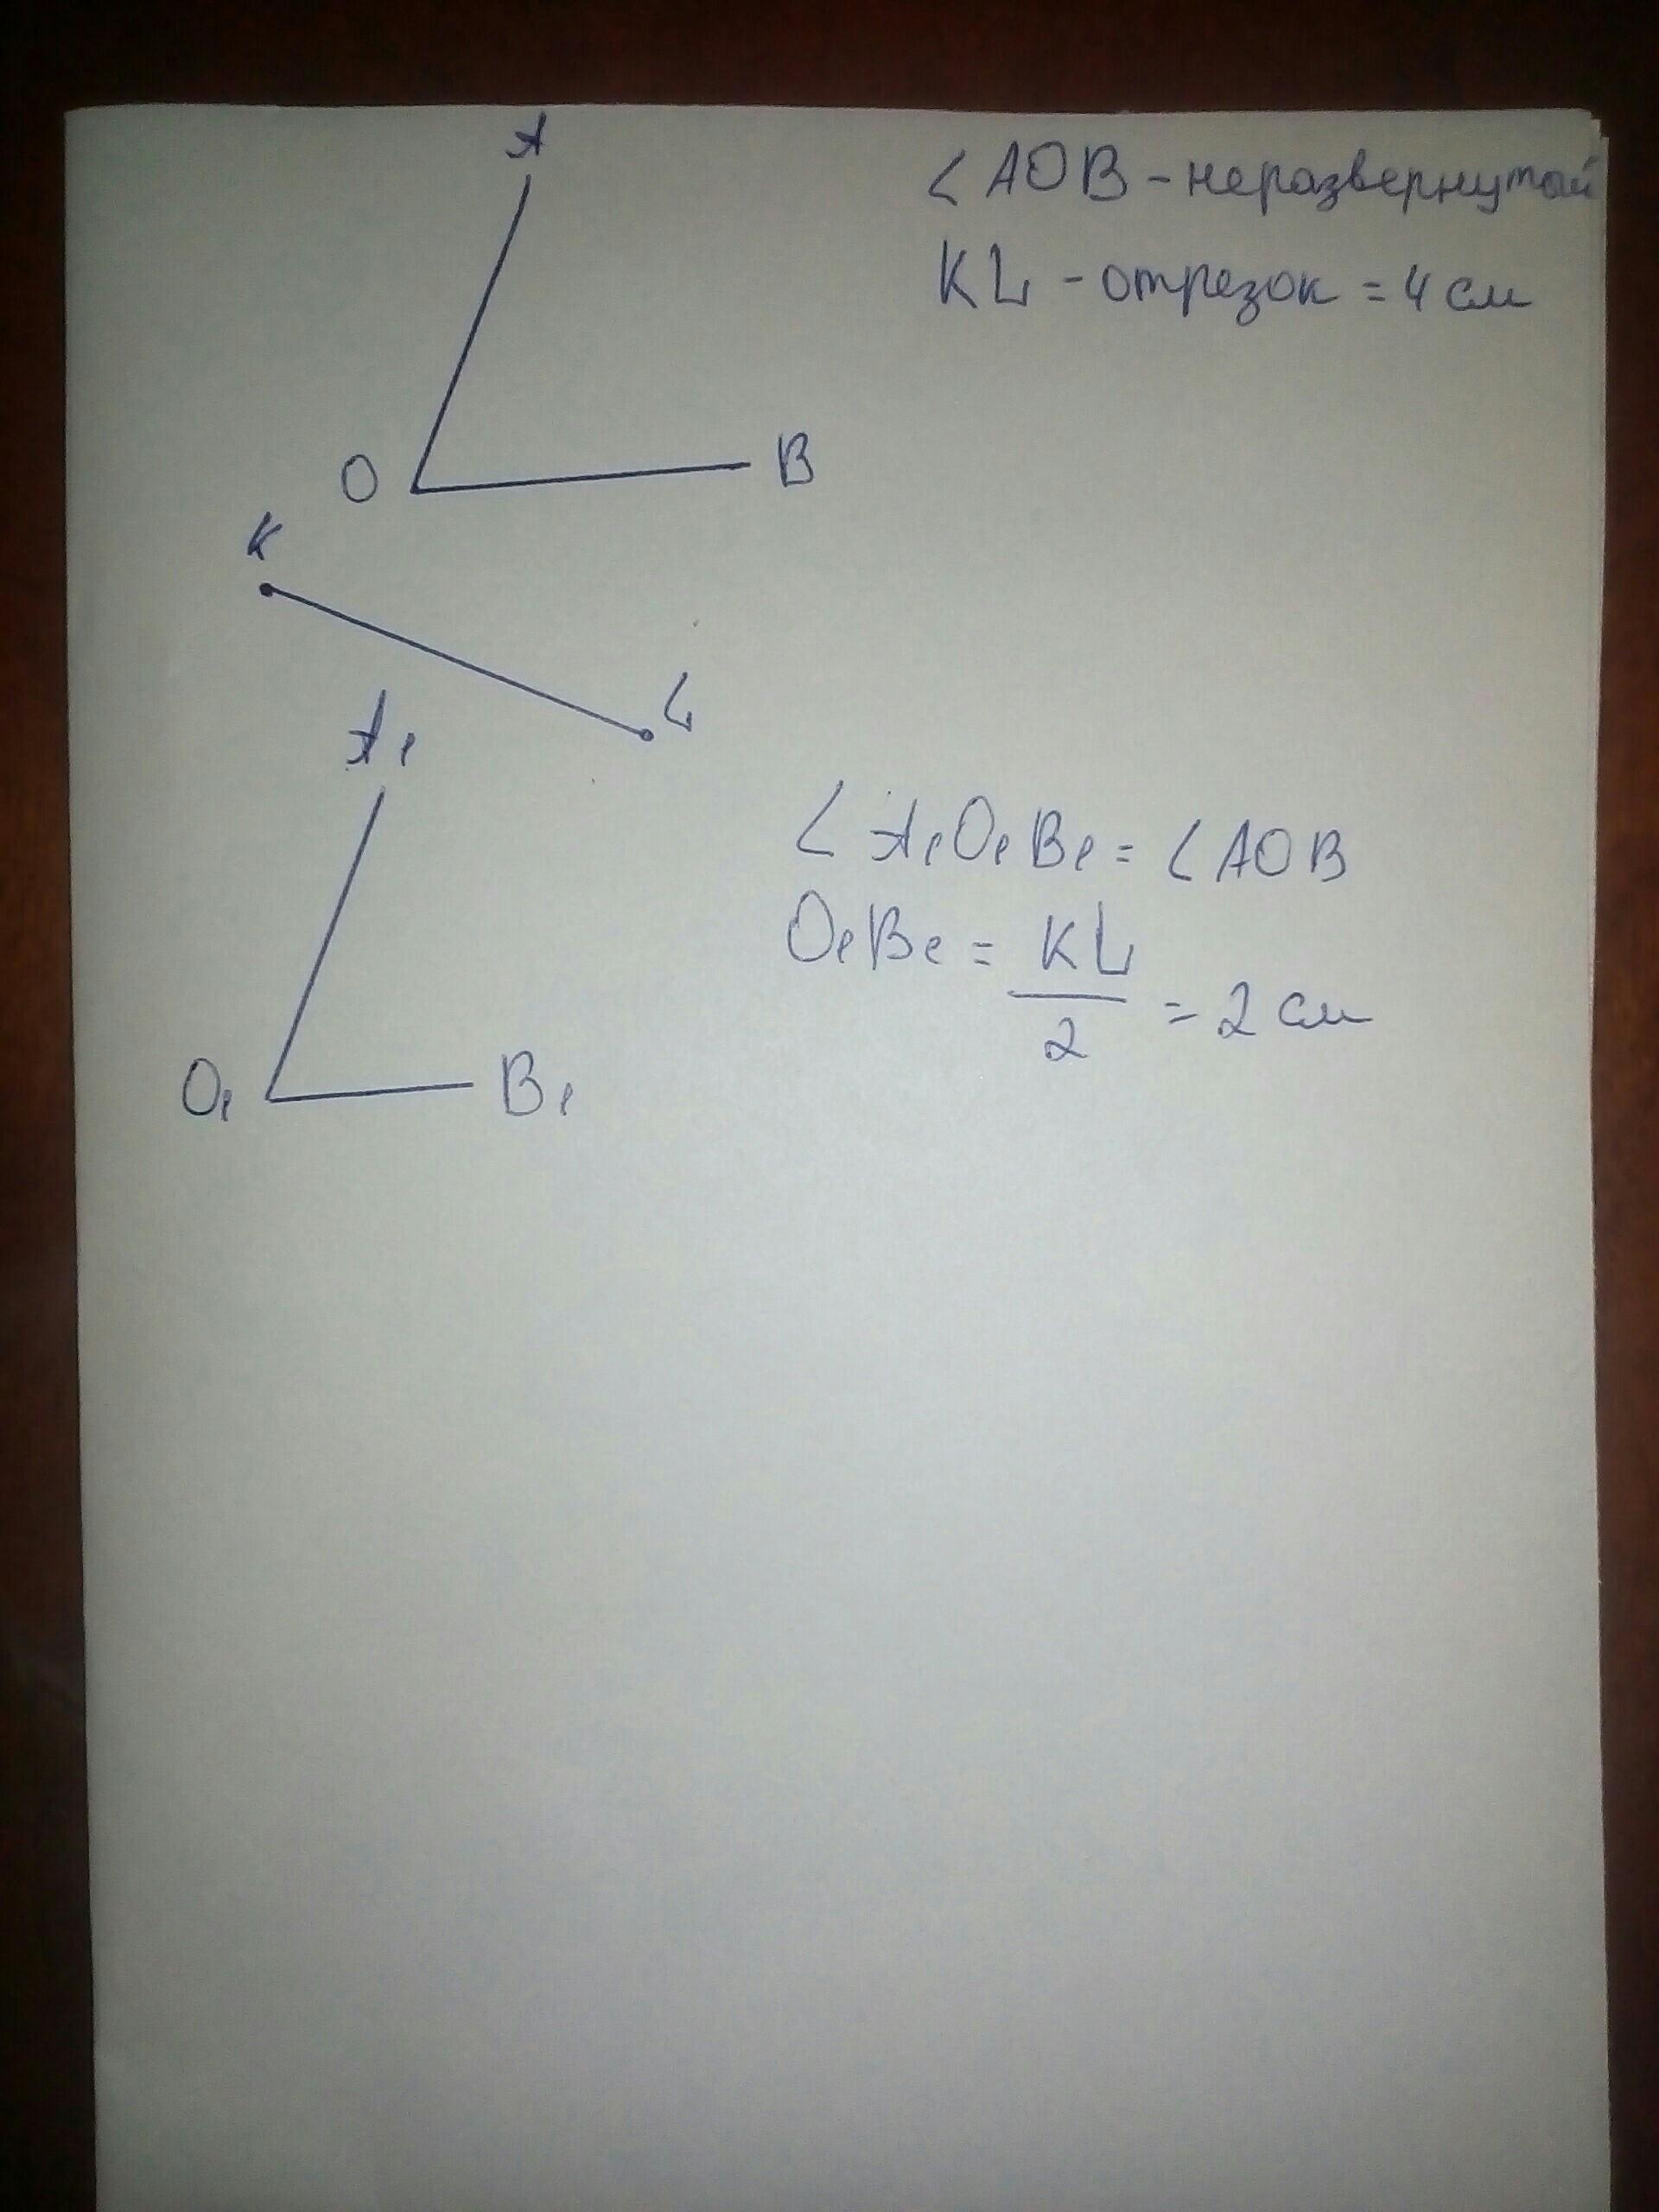 A
∠ AOB - неразвернутый
KL - отрезок = 4 см
O
B
K
L
A₁
∠ A₁O₁B₁ = ∠ AOB
O₁B₁ = KL/2 = 2 см
O₁
B₁